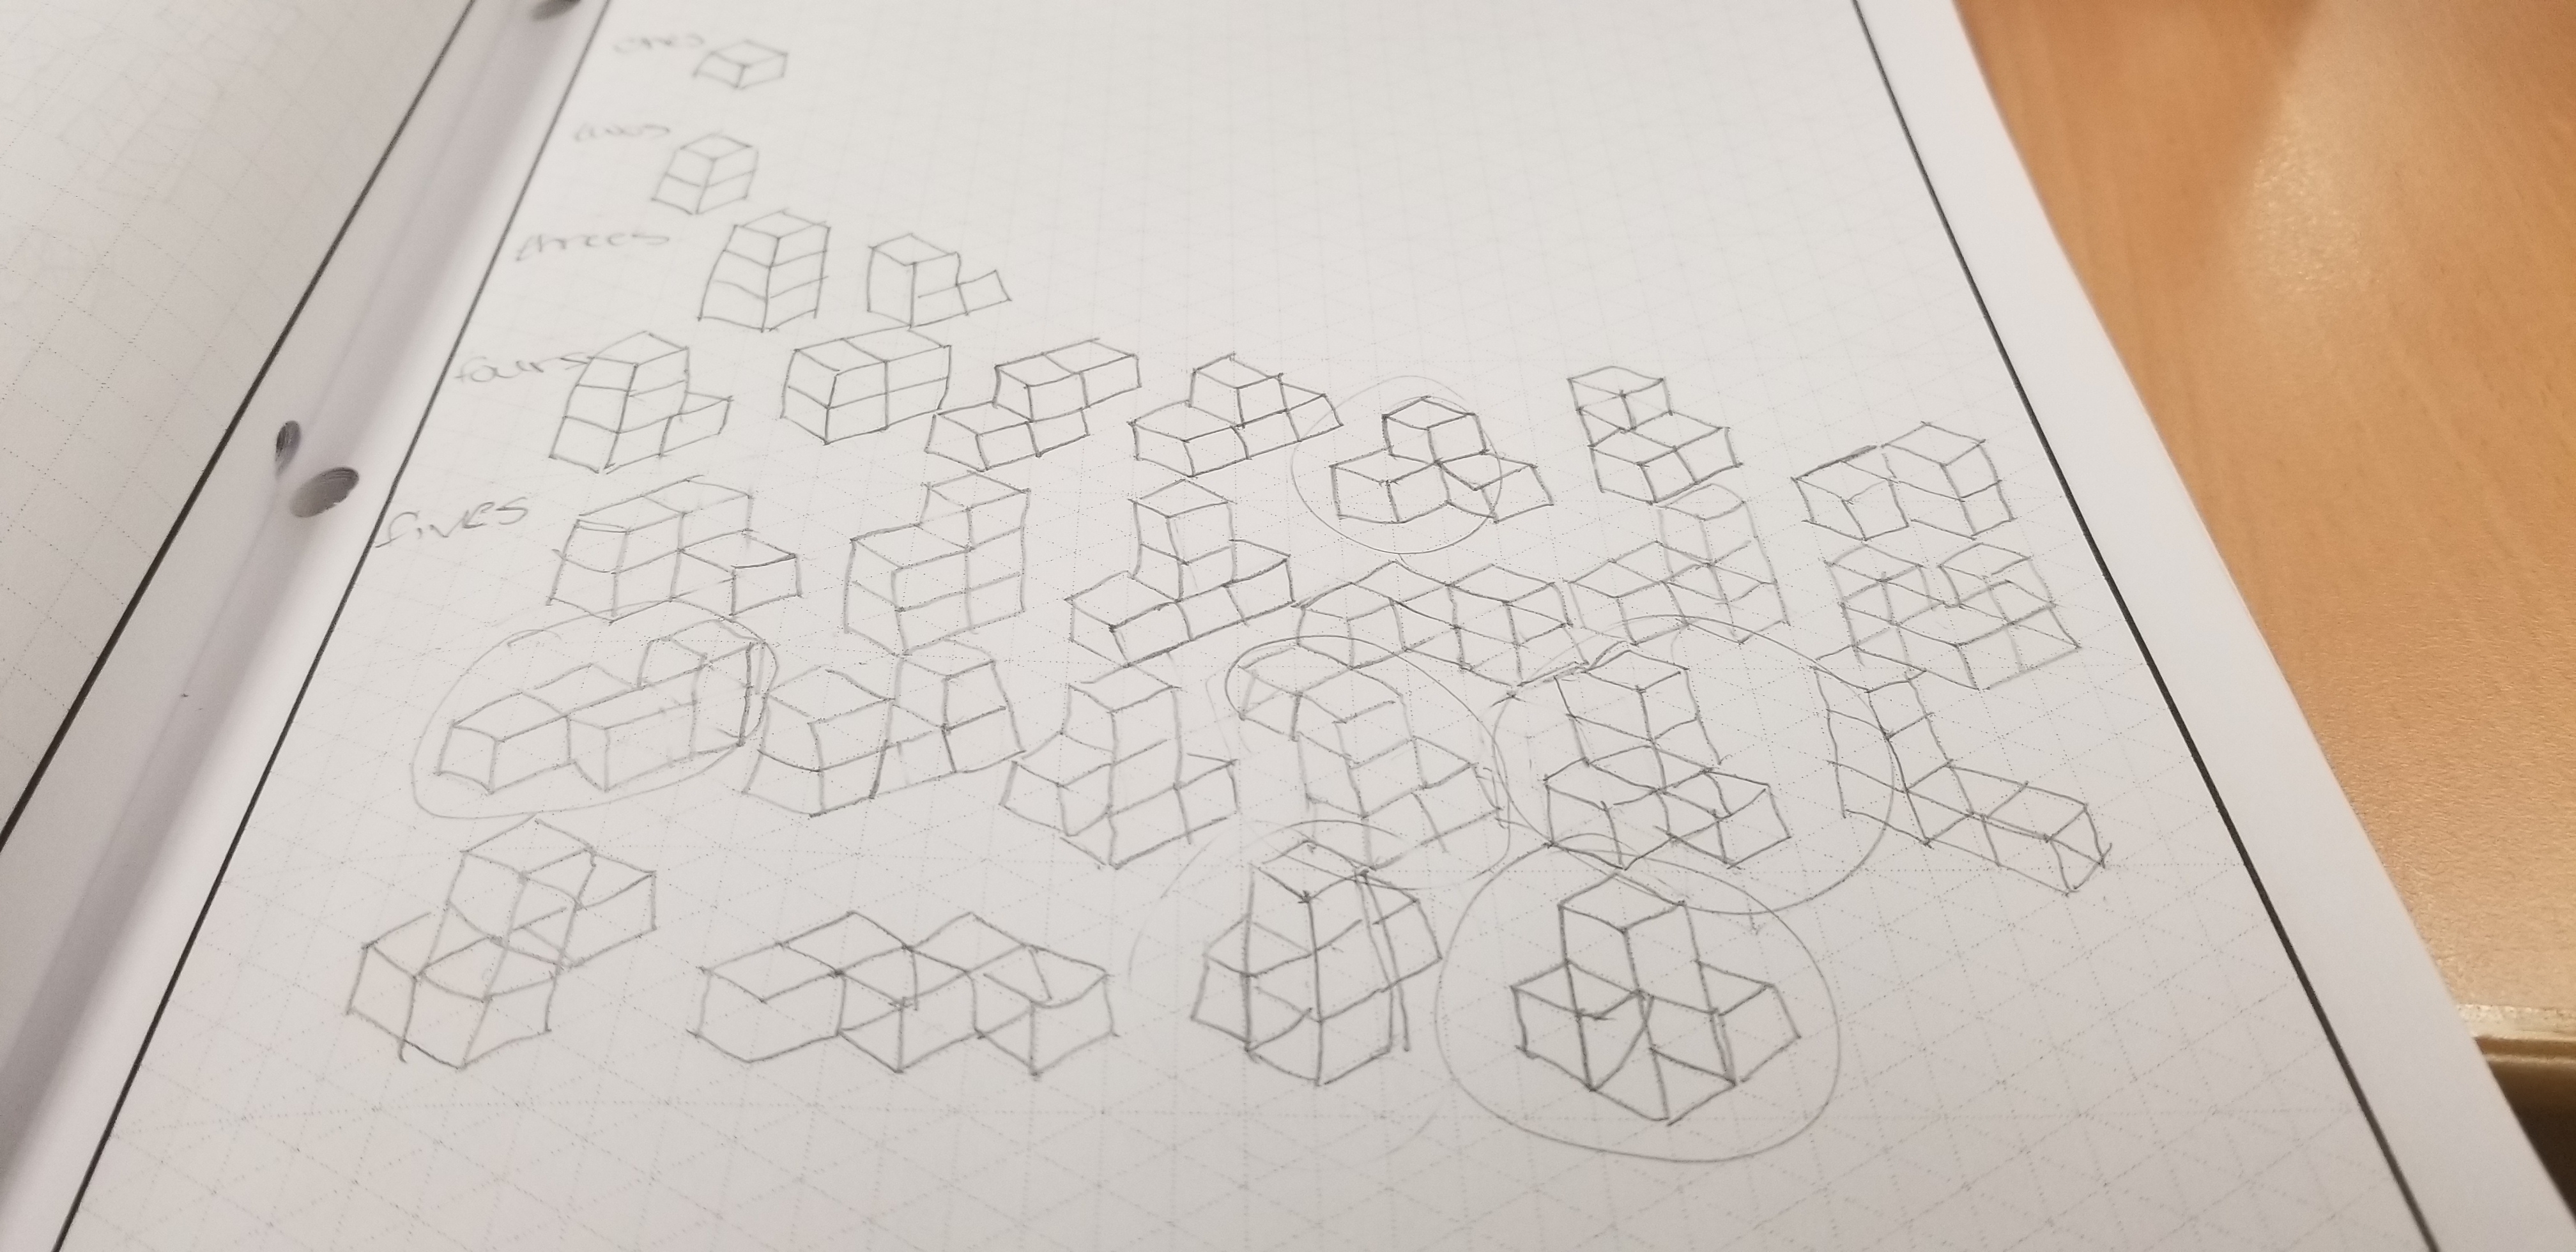 ones
twos
threes
fours
fives